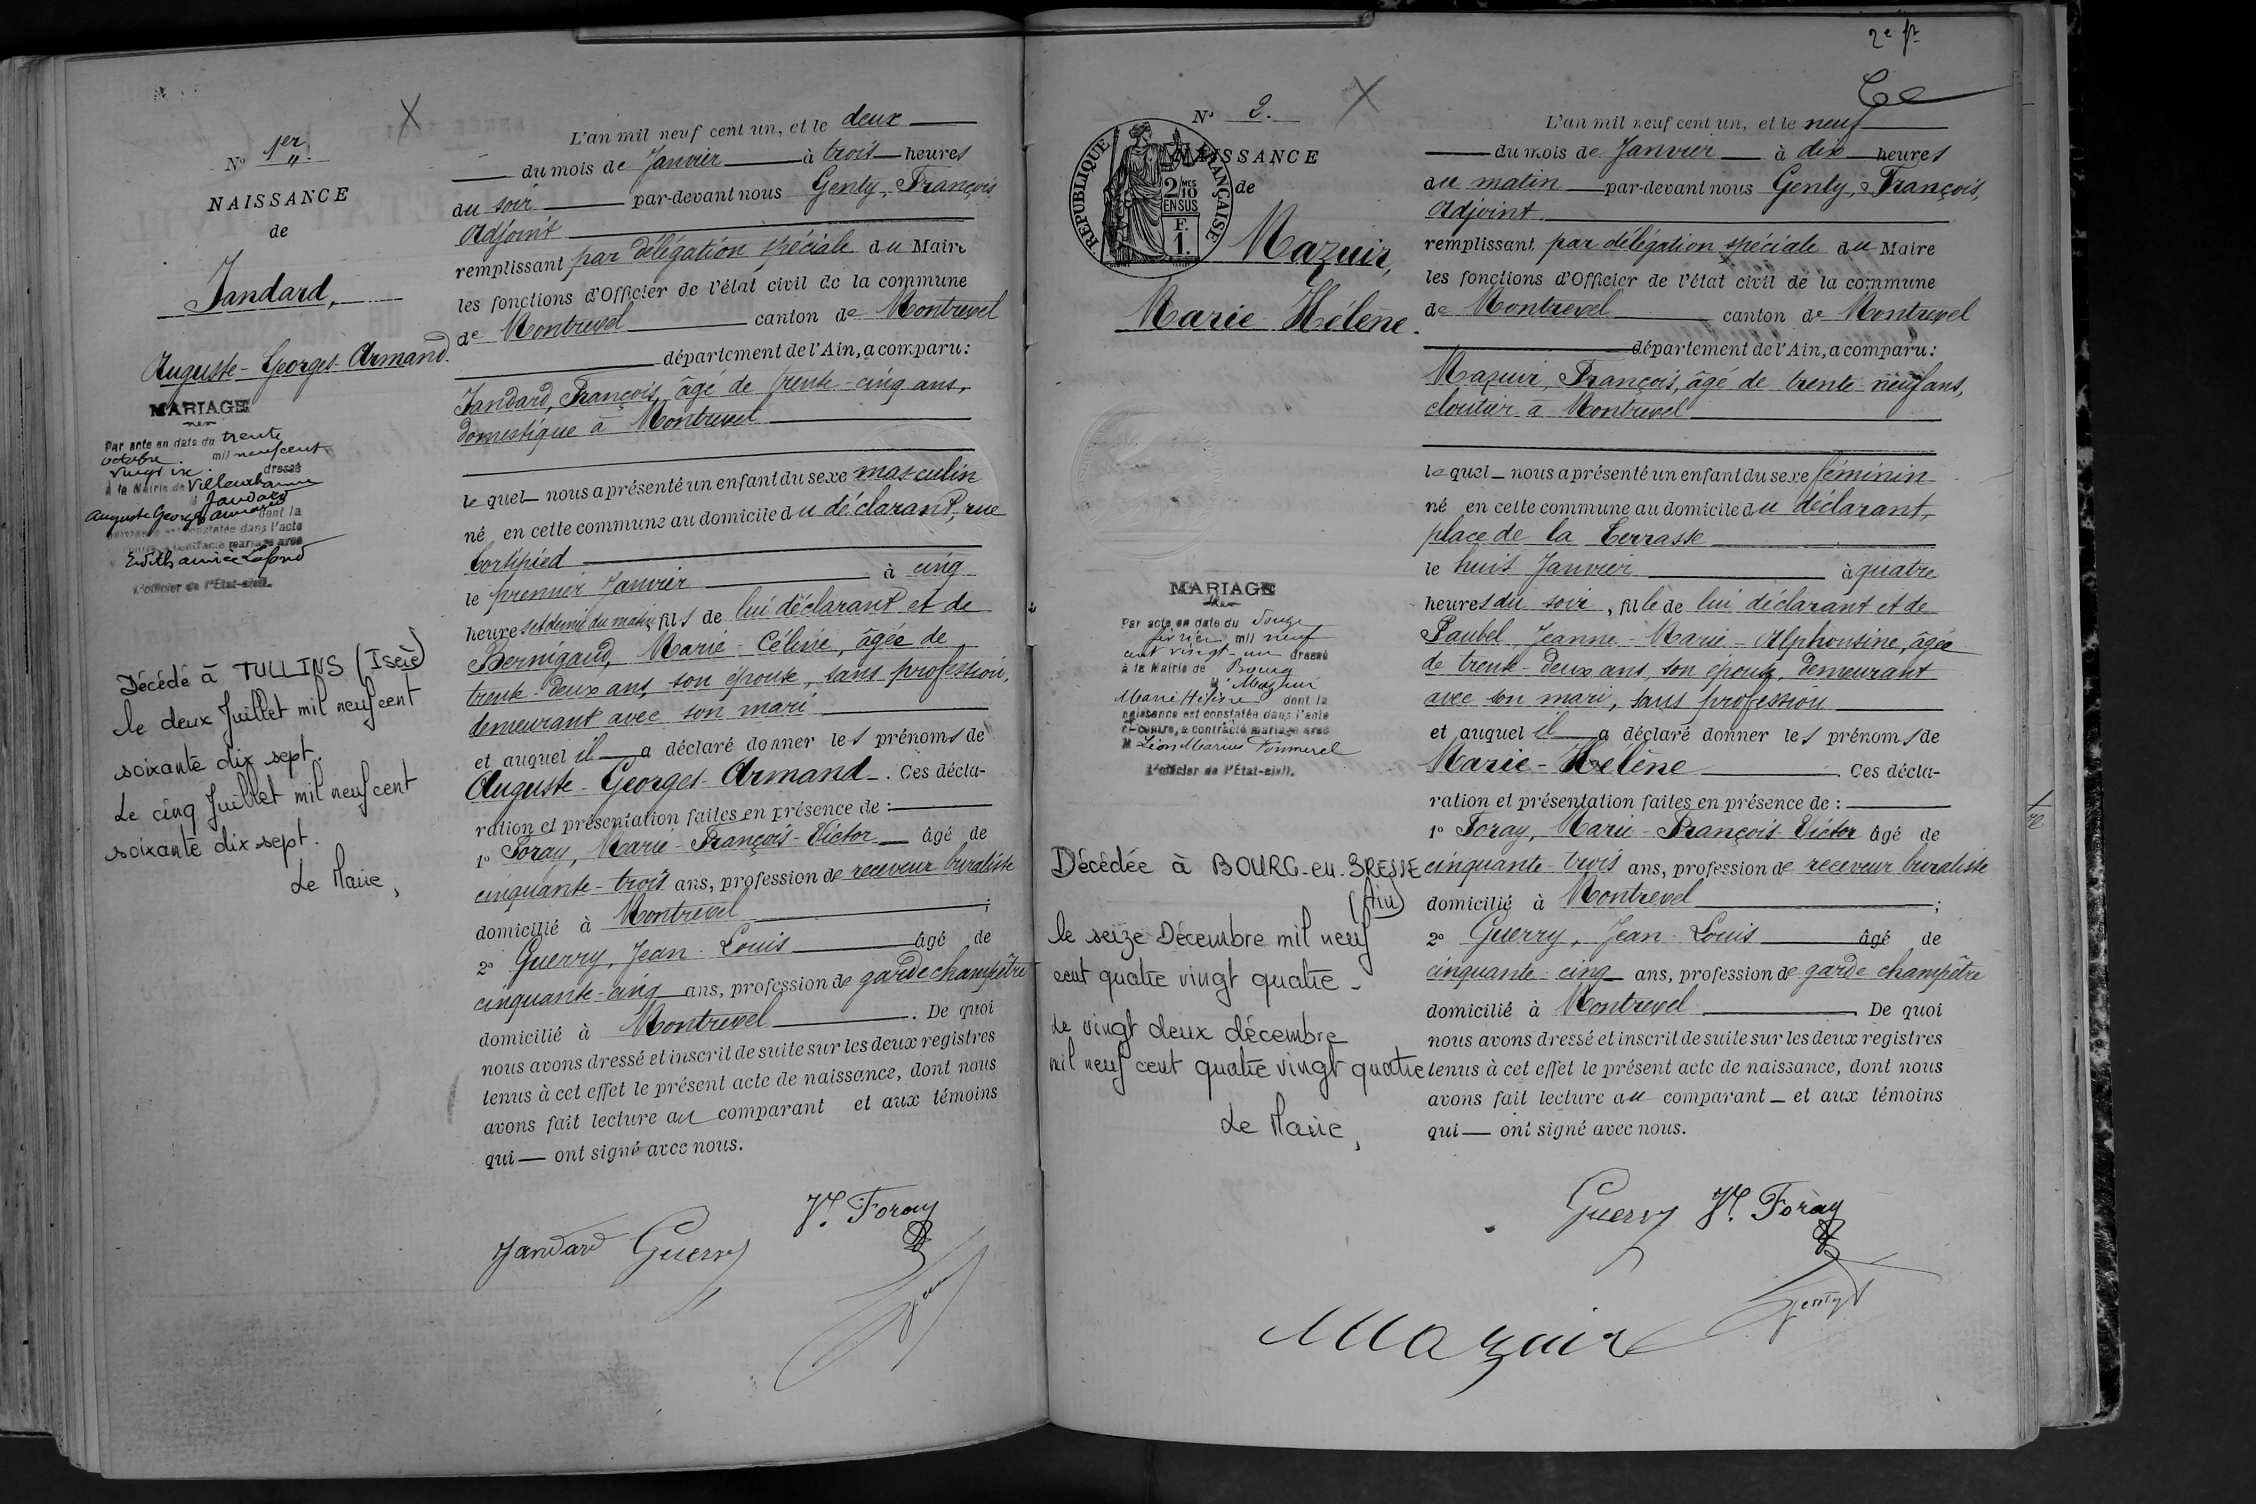 Nº 1er
NAISSANCE
de
Jandard,
Auguste-Georges-Armand.
MARIAGE
Par acte en date du trente
octobre mil neuf cent
vingt
dressé
à la Mairie de Villeurbanne
Jandard
Auguste Georges Armand dont la
naissance est constatée dans l'acte
ci-contre, a contracté mariage avec
Lafond
L'officier de l'Etat-civil.
Décédé à TULLINS (Isère)
le deux Juillet mil neuf cent
soixante dix sept.
Le cinq Juillet mil neuf cent
soixante dix sept.
Le Maire,
L'an mil neuf cent un, et le deux
du mois de Janvier à trois heures
du soir par-devant nous Genty, François,
Adjoint
remplissant par délégation spéciale du Maire
les fonctions d'Officier de l'état civil de la commune
de Montrevel canton de Montrevel
département de l'Ain, a comparu:
Jandard, François, âgé de trente-cinq ans,
domestique à Montrevel
le quel nous a présenté un enfant du sexe masculin
né en cette commune au domicile du déclarant, rue
le premier Janvier à cinq
heures et demie du matin, fils de lui déclarant et de
Bernigaud, Marie-Céline, âgée de
trente-deux ans, son épouse, sans profession,
demeurant avec son mari
et auquel il a déclaré donner les prénoms de
Auguste-Georges-Armand. Ces décla-
ration et présentation faites en présence de :
1º Foray, Marie-François-Victor âgé de
cinquante-trois ans, profession de receveur buraliste
domicilié à Montrevel ;
2º Guerry, Jean-Louis âgé de
cinquante-cinq ans, profession de garde champêtre
domicilié à Montrevel . De quoi
nous avons dressé et inscrit de suite sur les deux registres
tenus à cet effet le présent acte de naissance, dont nous
avons fait lecture au comparant et aux témoins
qui ont signé avec nous.
Vt. Foray
Jandard Guerry
2e ft
Nº 2.
NAISSANCE
de
RÉPUBLIQUE FRANÇAISE
2/MES
10
EN SUS
F.
1.
Mazuir,
Marie-Hélène.
MARIAGE
Par acte en date du douze
février mil neuf
cent vingt-un dressé
à la Mairie de Bourg
Mazuir
Marie Hélène dont la
naissance est constatée dans l'acte
ci-contre, a contracté mariage avec
M Léon Marius
L'officier de l'État-civil.
Décédée à BOURG-en-BRESSE
(Ain)
le seize Décembre mil neuf
cent quatre vingt quatre -
Le vingt deux décembre
mil neuf cent quatre vingt quatre
Le Maire,
L'an mil neuf cent un, et le neuf
du mois de Janvier à dix heures
du matin par-devant nous Genty, François,
Adjoint
remplissant par délégation spéciale du Maire
les fonctions d'Officier de l'état civil de la commune
de Montrevel canton de Montrevel
département de l'Ain, a comparu:
Mazuir, François, âgé de trente-neuf ans,
cloutier à Montrevel
le quel nous a présenté un enfant du sexe féminin
né en cette commune au domicile du déclarant,
place de la Terrasse
le huit Janvier à quatre
heures du soir, fille de lui déclarant et de
Paubel, Jeanne-Marie-Alphonsine, âgée
de trente-deux ans, son épouse, demeurant
avec son mari, sans profession
et auquel il a déclaré donner les prénoms de
Marie-Hélène . Ces décla-
ration et présentation faites en présence de :
1º Foray, Marie-François-Victor âgé de
cinquante-trois ans, profession de receveur buraliste
domicilié à Montrevel ;
2º Guerry, Jean-Louis âgé de
cinquante-cinq ans, profession de garde champêtre
domicilié à Montrevel . De quoi
nous avons dressé et inscrit de suite sur les deux registres
tenus à cet effet le présent acte de naissance, dont nous
avons fait lecture au comparant et aux témoins
qui ont signé avec nous.
Guerry Vt. Foray
Genty
Mazuir